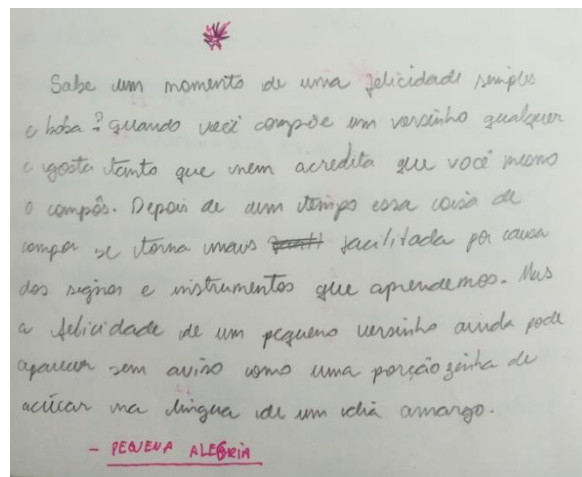 Sabe um momento de uma felicidade simples
e boba? Quando você compõe um versinho qualquer
e gosta tanto que nem acredita que você mesmo
o compôs. Depois de um tempo essa coisa de
compor se torna mais facilitada por causa
dos signos e instrumentos que aprendemos. Mas
a felicidade de um pequeno versinho ainda pode
aparecer sem aviso como uma porçãozinha de
acúcar na língua de um dia amargo.
- PEQUENA ALEGRIA